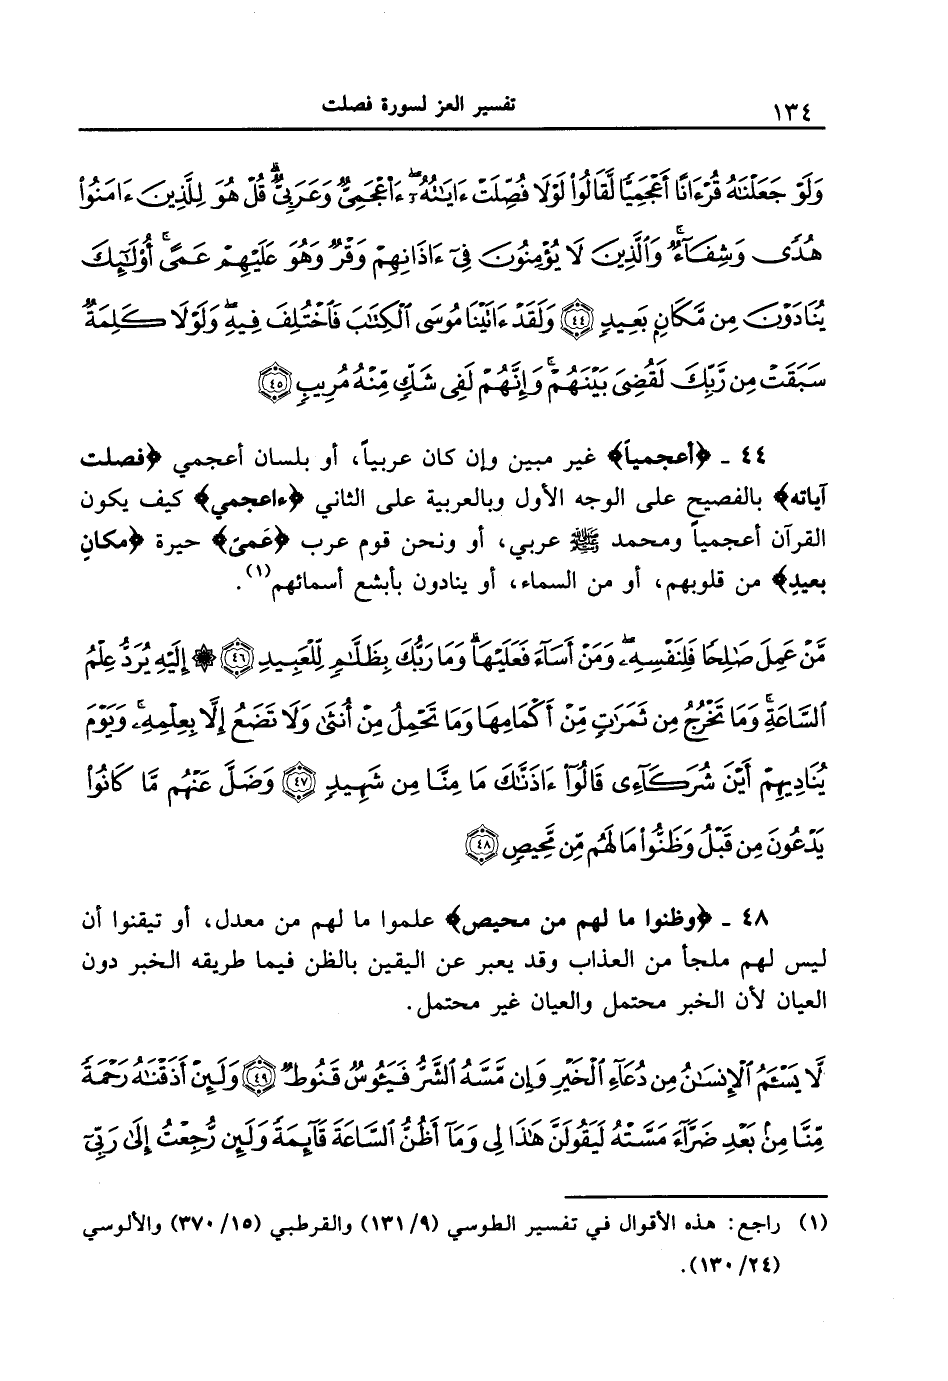 ١٣٤
تفسير العز لسورة فصلت
وَلَوْ جَعَلْنَٰهُ قُرْءَانًا أَعْجَمِيًّا لَّقَالُوا۟ لَوْلَا فُصِّلَتْ ءَايَٰتُهُۥٓ ۖ ءَا۬عْجَمِىٌّ وَعَرَبِىٌّ ۗ قُلْ هُوَ لِلَّذِينَ ءَامَنُوا۟
هُدًى وَشِفَآءٌ ۖ وَٱلَّذِينَ لَا يُؤْمِنُونَ فِىٓ ءَاذَانِهِمْ وَقْرٌ وَهُوَ عَلَيْهِمْ عَمًى ۚ أُو۟لَٰٓئِكَ
يُنَادَوْنَ مِن مَّكَانٍۭ بَعِيدٍ ﴿٤٤﴾ وَلَقَدْ ءَاتَيْنَا مُوسَى ٱلْكِتَٰبَ فَٱخْتُلِفَ فِيهِ ۗ وَلَوْلَا كَلِمَةٌ
سَبَقَتْ مِن رَّبِّكَ لَقُضِىَ بَيْنَهُمْ ۚ وَإِنَّهُمْ لَفِى شَكٍّ مِّنْهُ مُرِيبٍ ﴿٤٥﴾
٤٤ ـ ﴿أعجمياً﴾ غير مبين وإن كان عربياً، أو بلسان أعجمي ﴿فصلت
آياته﴾ بالفصيح على الوجه الأول وبالعربية على الثاني ﴿ءاعجمي﴾ كيف يكون
القرآن أعجمياً ومحمد ﷺ عربي، أو ونحن قوم عرب ﴿عَمىً﴾ حيرة ﴿مكانٍ
بعيدٍ﴾ من قلوبهم، أو من السماء، أو ينادون بأبشع أسمائهم(١).
مَّنْ عَمِلَ صَٰلِحًا فَلِنَفْسِهِۦ ۖ وَمَنْ أَسَآءَ فَعَلَيْهَا ۗ وَمَا رَبُّكَ بِظَلَّٰمٍ لِّلْعَبِيدِ ﴿٤٦﴾ ۞ إِلَيْهِ يُرَدُّ عِلْمُ
ٱلسَّاعَةِ ۚ وَمَا تَخْرُجُ مِن ثَمَرَٰتٍ مِّنْ أَكْمَامِهَا وَمَا تَحْمِلُ مِنْ أُنثَىٰ وَلَا تَضَعُ إِلَّا بِعِلْمِهِۦ ۚ وَيَوْمَ
يُنَادِيهِمْ أَيْنَ شُرَكَآءِى قَالُوٓا۟ ءَاذَنَّٰكَ مَا مِنَّا مِن شَهِيدٍ ﴿٤٧﴾ وَضَلَّ عَنْهُم مَّا كَانُوا۟
يَدْعُونَ مِن قَبْلُ ۖ وَظَنُّوا۟ مَا لَهُم مِّن مَّحِيصٍ ﴿٤٨﴾
٤٨ ـ ﴿وظنوا ما لهم من محيص﴾ علموا ما لهم من معدل، أو تيقنوا أن
ليس لهم ملجأ من العذاب وقد يعبر عن اليقين بالظن فيما طريقه الخبر دون
العيان لأن الخبر محتمل والعيان غير محتمل.
لَّا يَسْـَٔمُ ٱلْإِنسَٰنُ مِن دُعَآءِ ٱلْخَيْرِ وَإِن مَّسَّهُ ٱلشَّرُّ فَيَـُٔوسٌ قَنُوطٌ ﴿٤٩﴾ وَلَئِنْ أَذَقْنَٰهُ رَحْمَةً
مِّنَّا مِنۢ بَعْدِ ضَرَّآءَ مَسَّتْهُ لَيَقُولَنَّ هَٰذَا لِى وَمَآ أَظُنُّ ٱلسَّاعَةَ قَآئِمَةً وَلَئِن رُّجِعْتُ إِلَىٰ رَبِّىٓ
(١) راجع: هذه الأقوال في تفسير الطوسي (٩/ ١٣١) والقرطبي (١٥/ ٣٧٠) والألوسي
(٢٤/ ١٣٠).